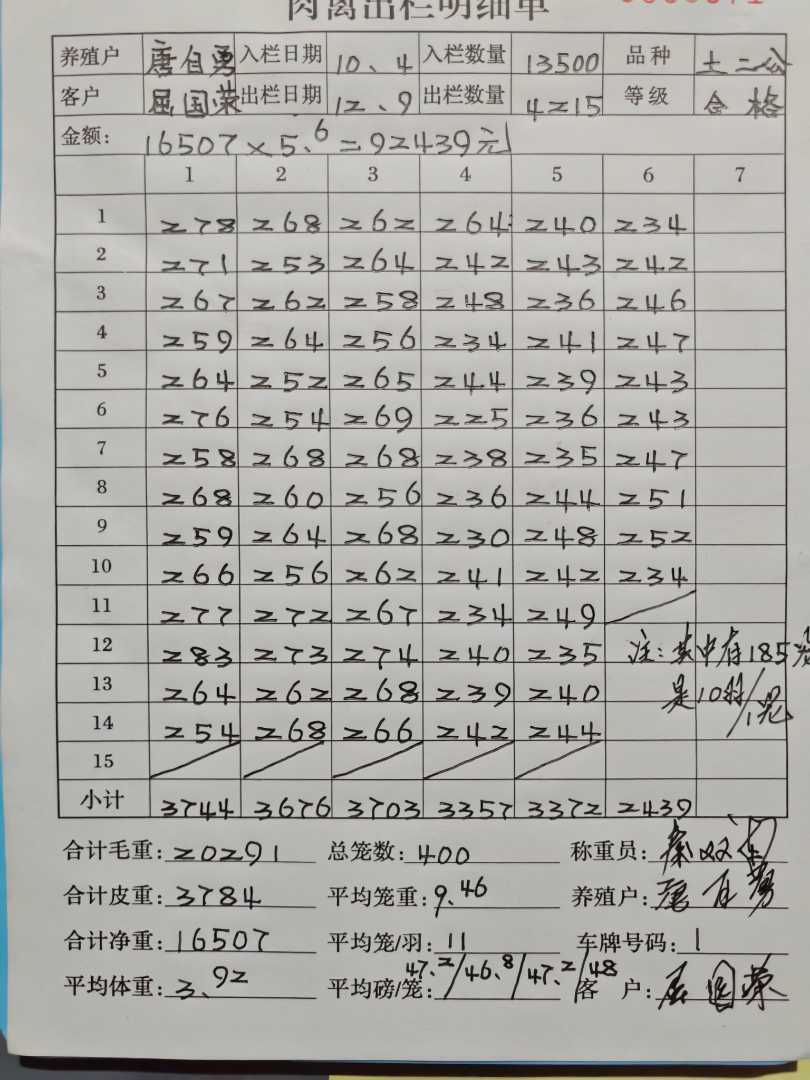 肉禽出栏明细单
养殖户 唐自勇 入栏日期 10、4 入栏数量 13500 品种 土二公
客户 屈国荣 出栏日期 12、9 出栏数量 4215 等级 合格
金额: 16507×5、6=92439元
1 2 3 4 5 6 7
1 278 268 262 264 240 234
2 271 253 264 242 243 242
3 267 262 258 248 236 246
4 259 264 256 234 241 247
5 264 252 265 244 239 243
6 276 254 269 225 236 243
7 258 268 268 238 235 247
8 268 260 256 236 244 251
9 259 264 268 230 248 252
10 266 256 262 241 242 234
11 277 272 267 234 249
12 283 273 274 240 235 注:其中有185笼
13 264 262 268 239 240 是10羽/笼
14 254 268 266 242 244
15
小计 3744 3676 3703 3357 3372 2439
合计毛重: 20291 总笼数: 400 称重员:
合计皮重: 3784 平均笼重: 9.46 养殖户: 唐自勇
合计净重: 16507 平均笼/羽: 11 车牌号码: 1
平均体重: 3、92 平均磅/笼: 47.2/46.8/47.2/48 客 户: 屈国荣